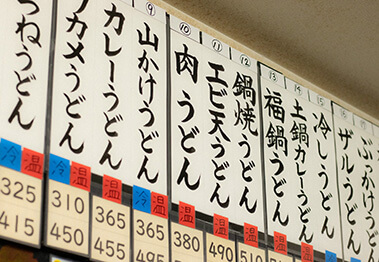 つねうどん
冷 温
325
415
ワカメうどん
冷 温
310
450
カレーうどん
温
365
455
⑨
山かけうどん
冷 温
365
495
⑩
肉うどん
温
380
⑪
エビ天うどん
温
490
⑫
鍋焼うどん
温
510
⑬
福鍋うどん
温
⑭
土鍋カレーうどん
温
⑮
冷しうどん
冷
ザルうどん
冷
ぶっかけうどん